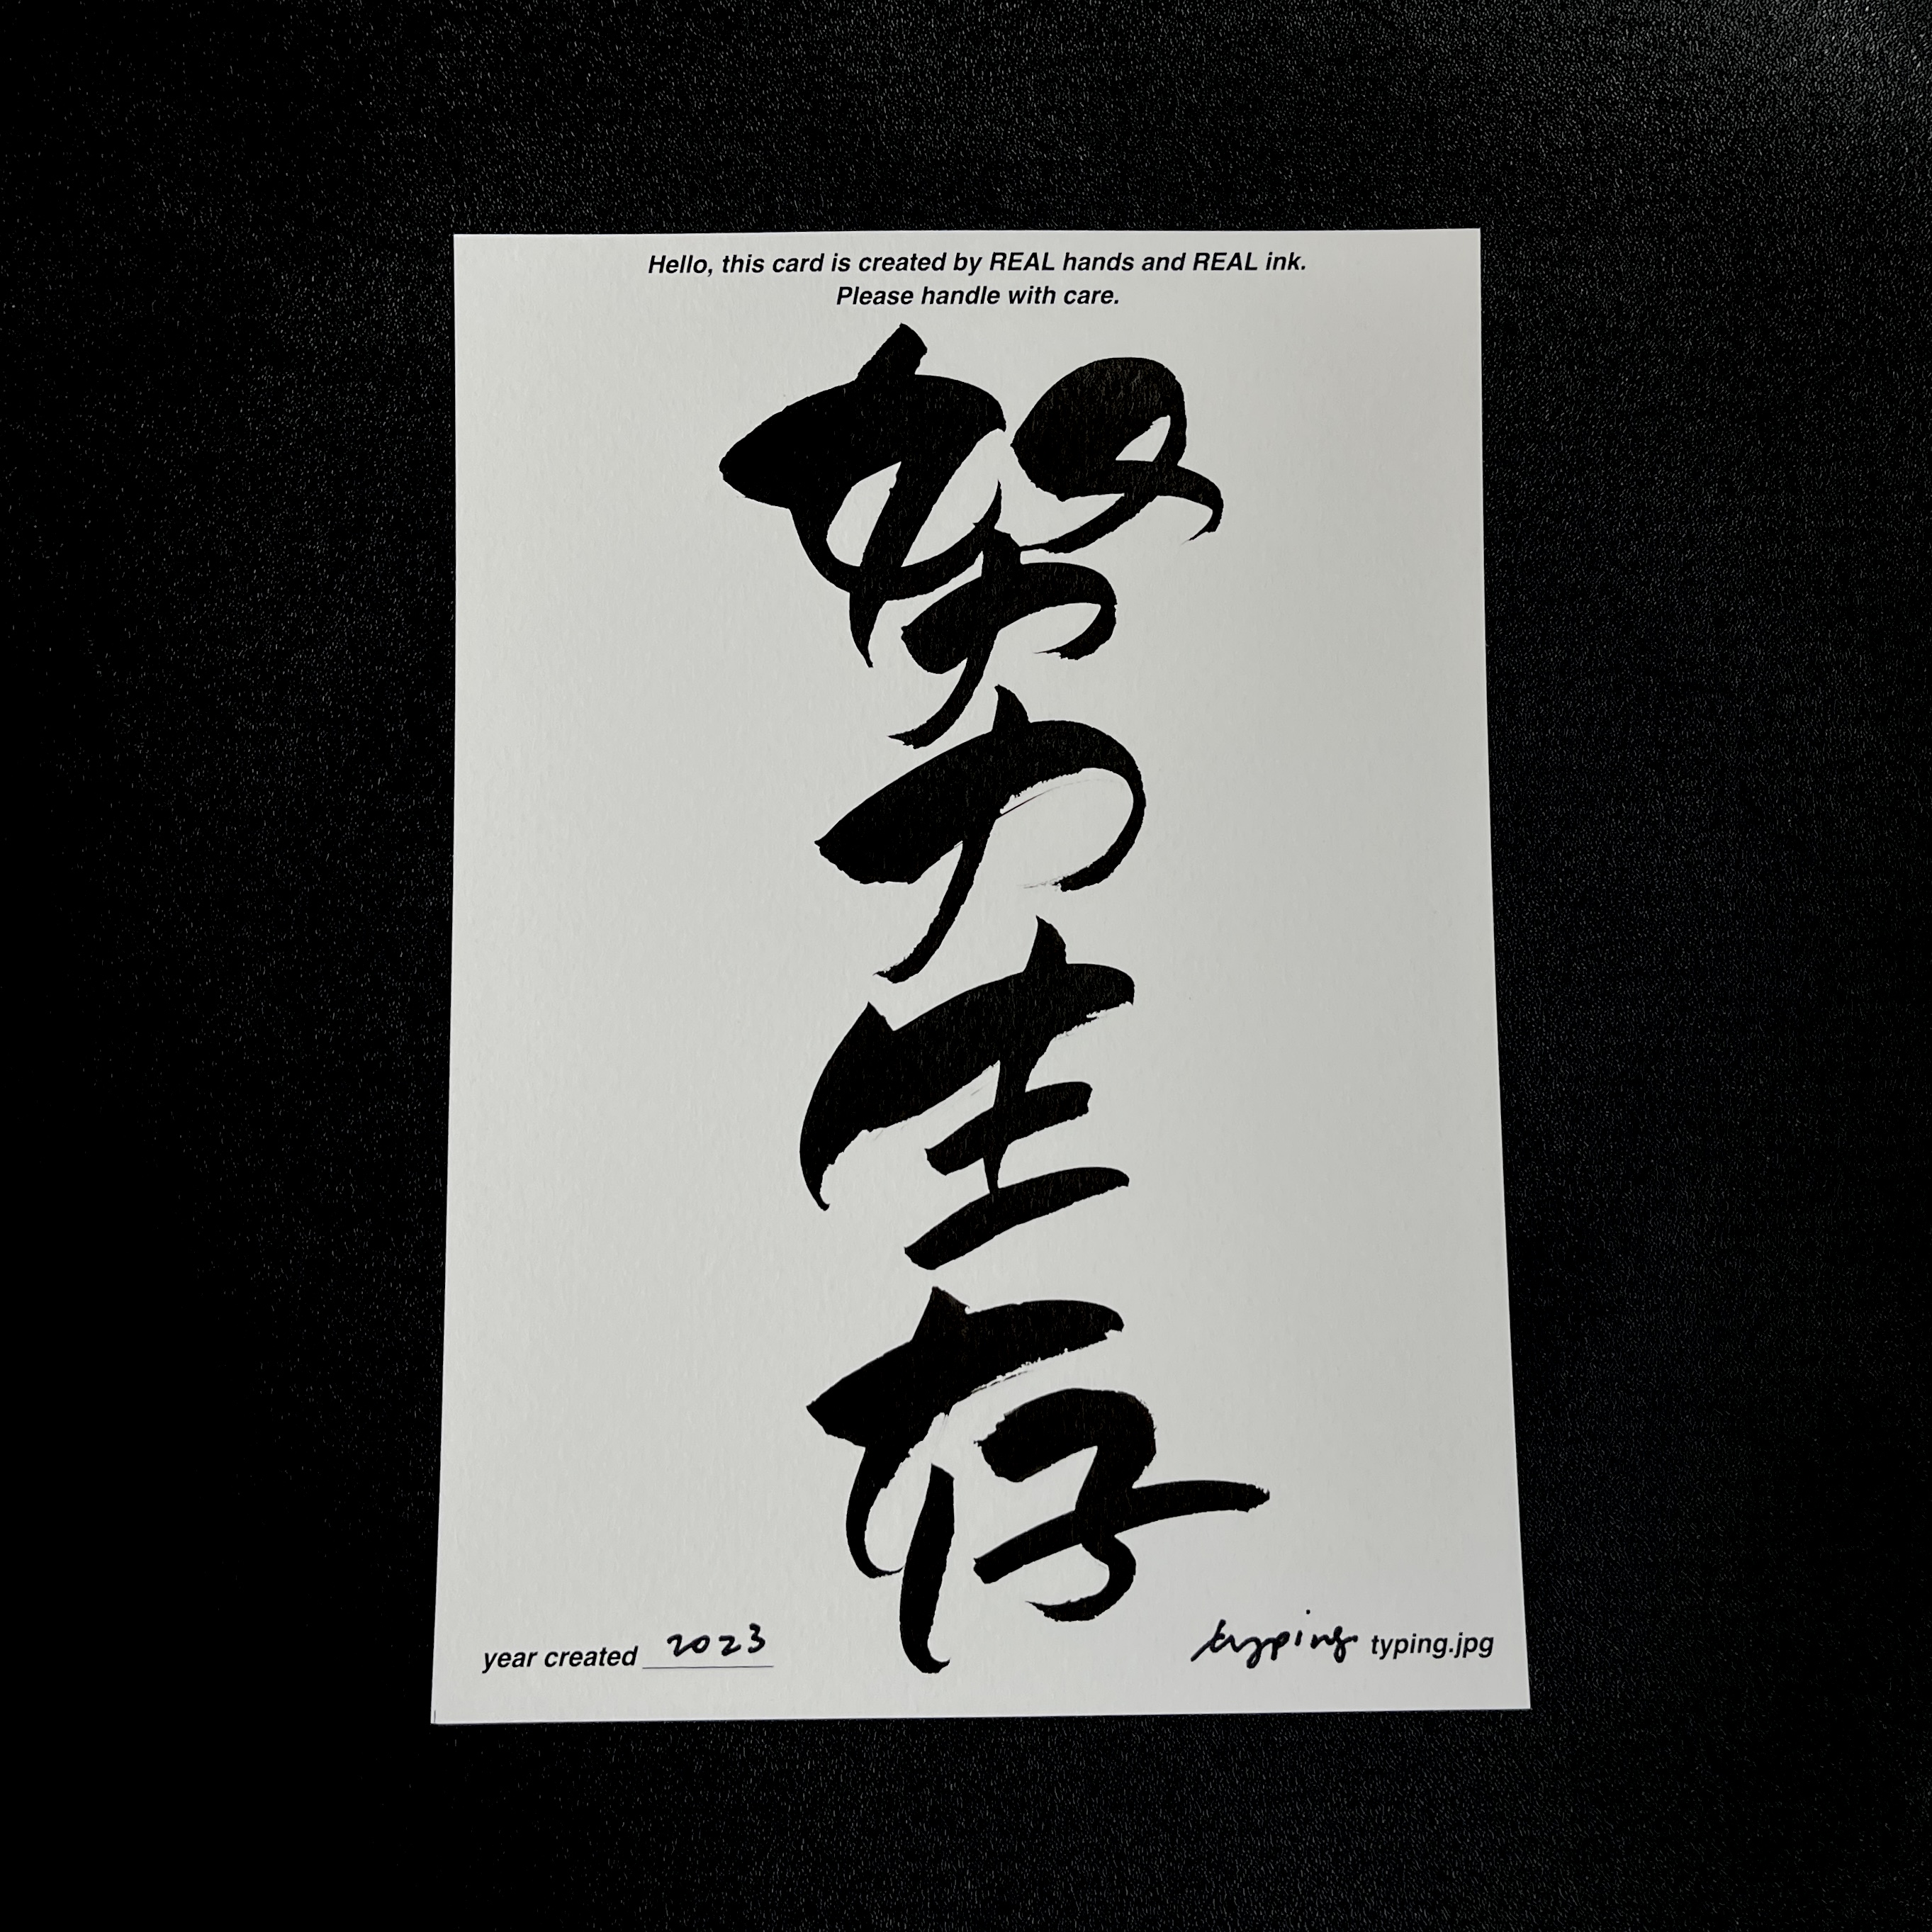 Hello, this card is created by REAL hands and REAL ink.
Please handle with care.
努力生存
year created 2023
typing typing.jpg